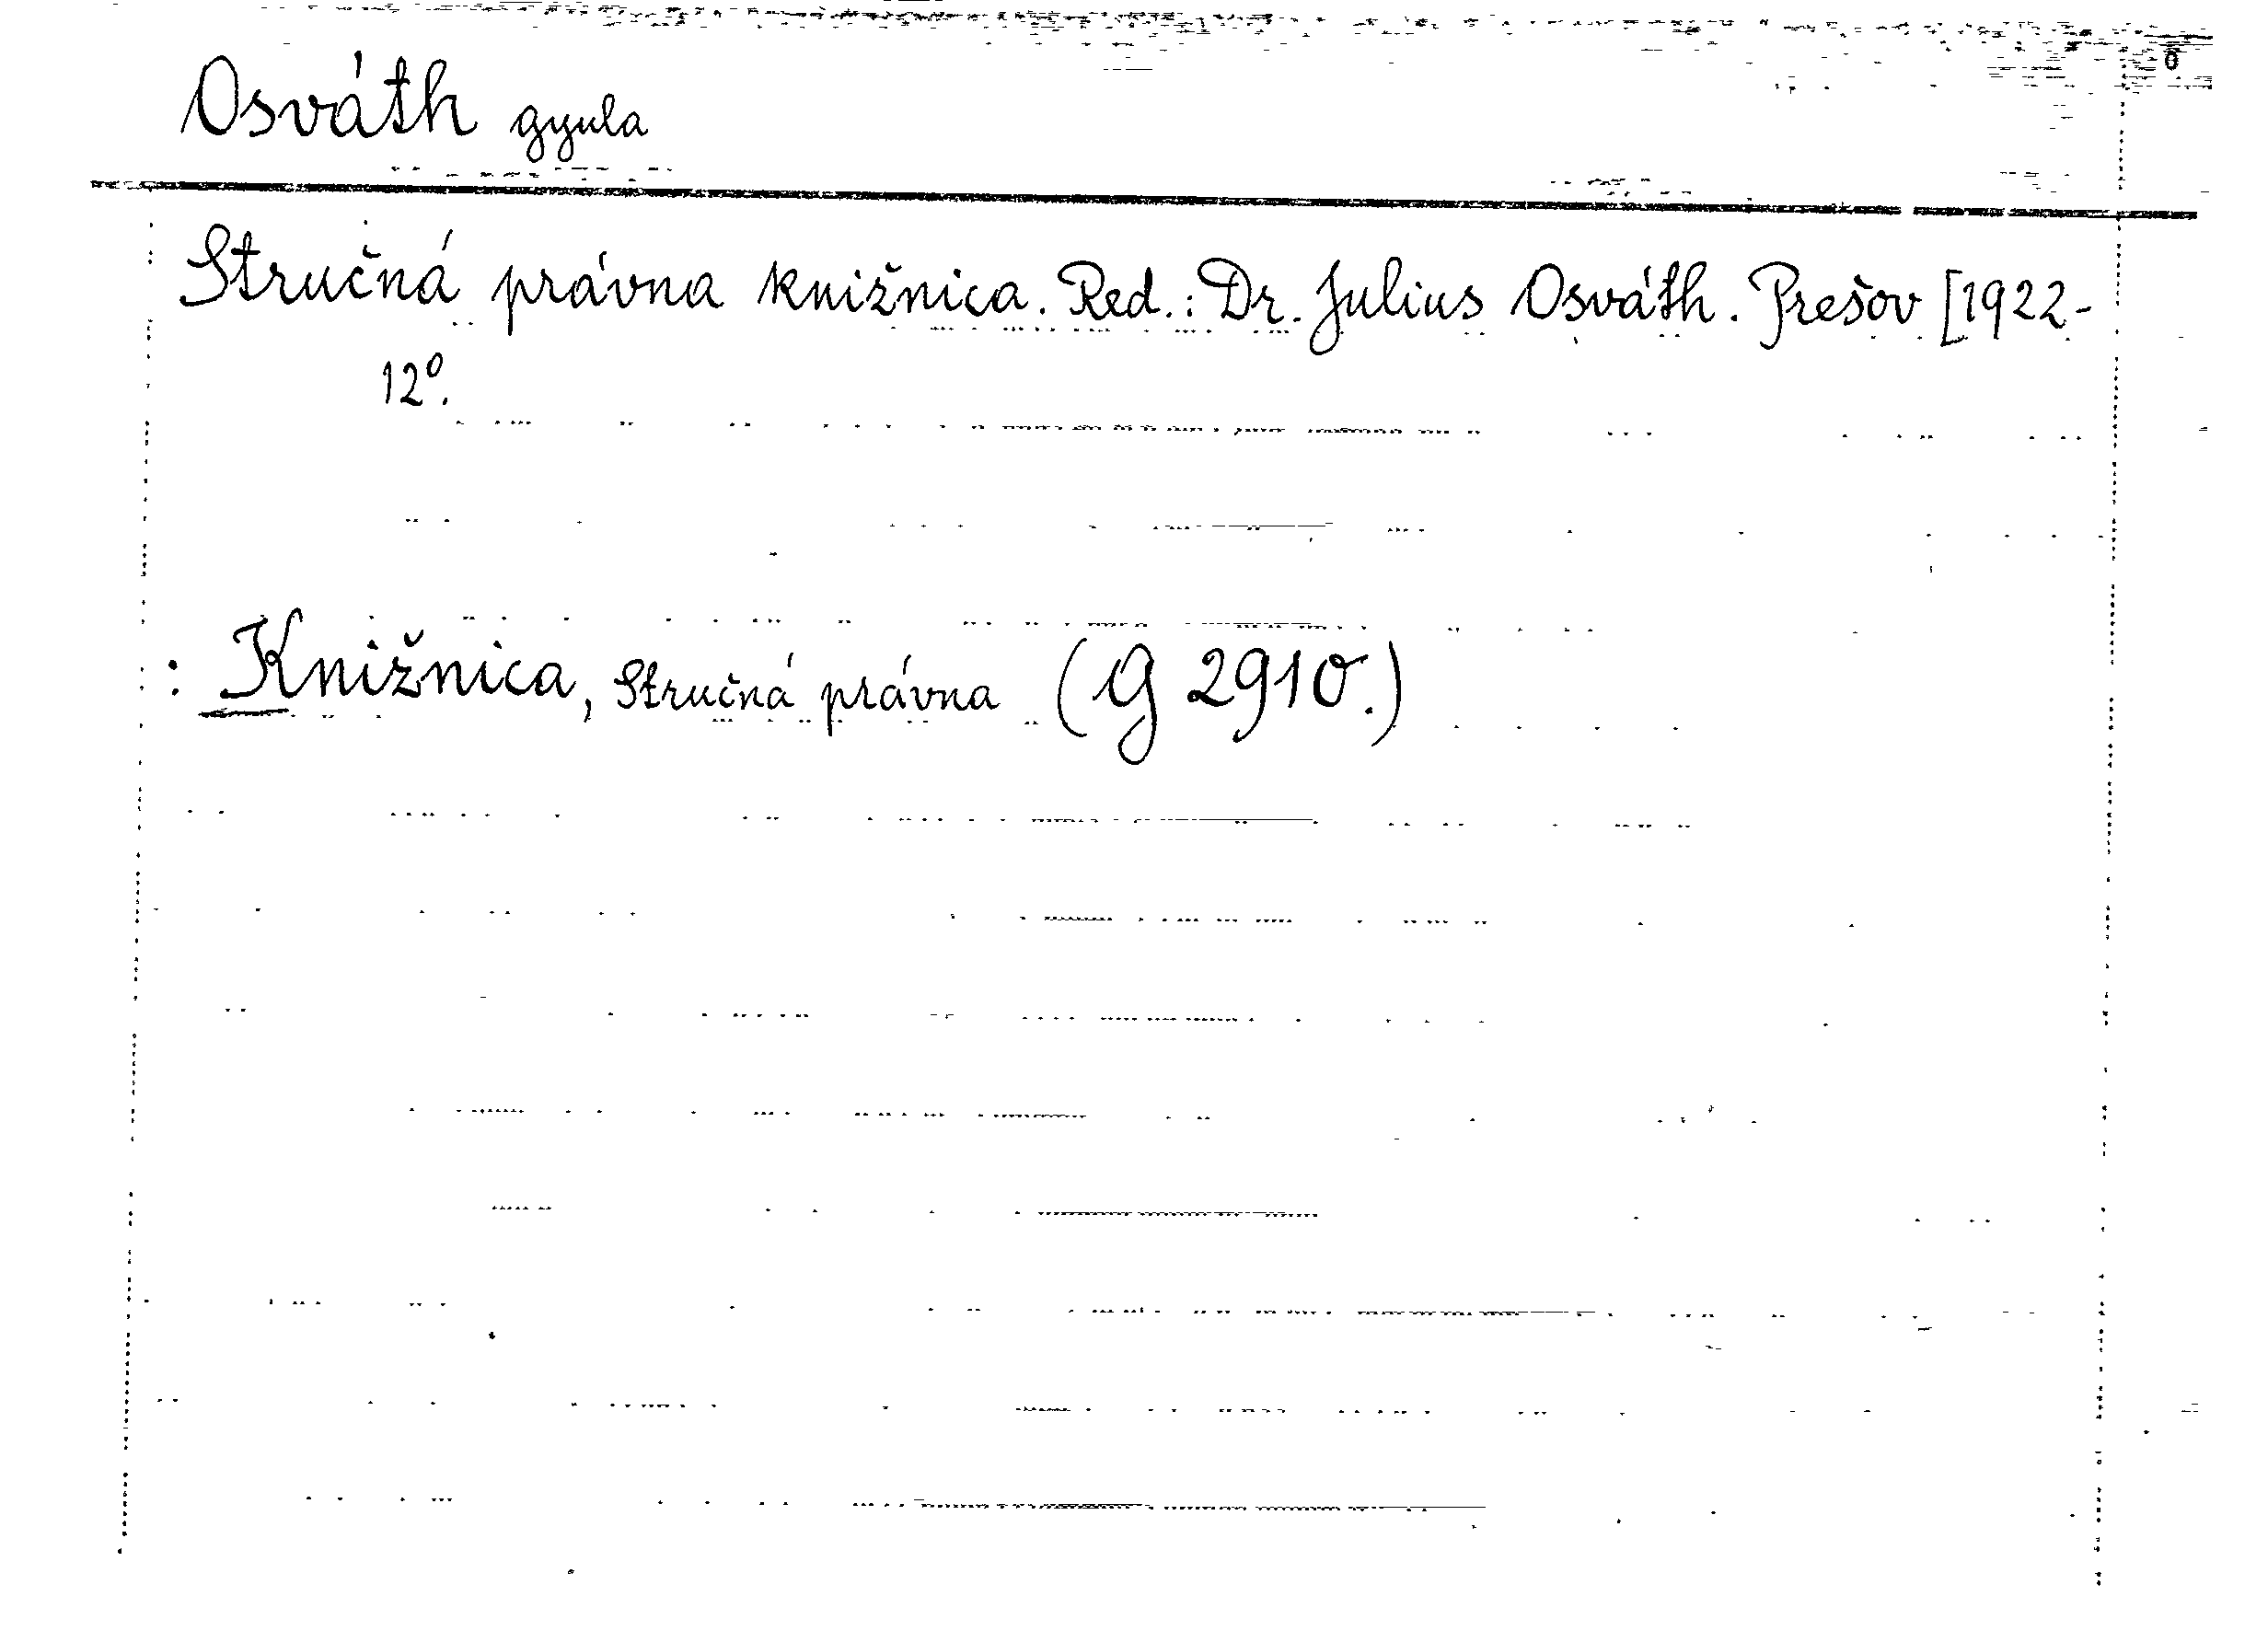 Osváth Gyula
Stručná právna knižnica. Red.: Dr. Julius Osváth. Prešov [1922-
12º.
: Knižnica, Stručná právna (G 2910.)